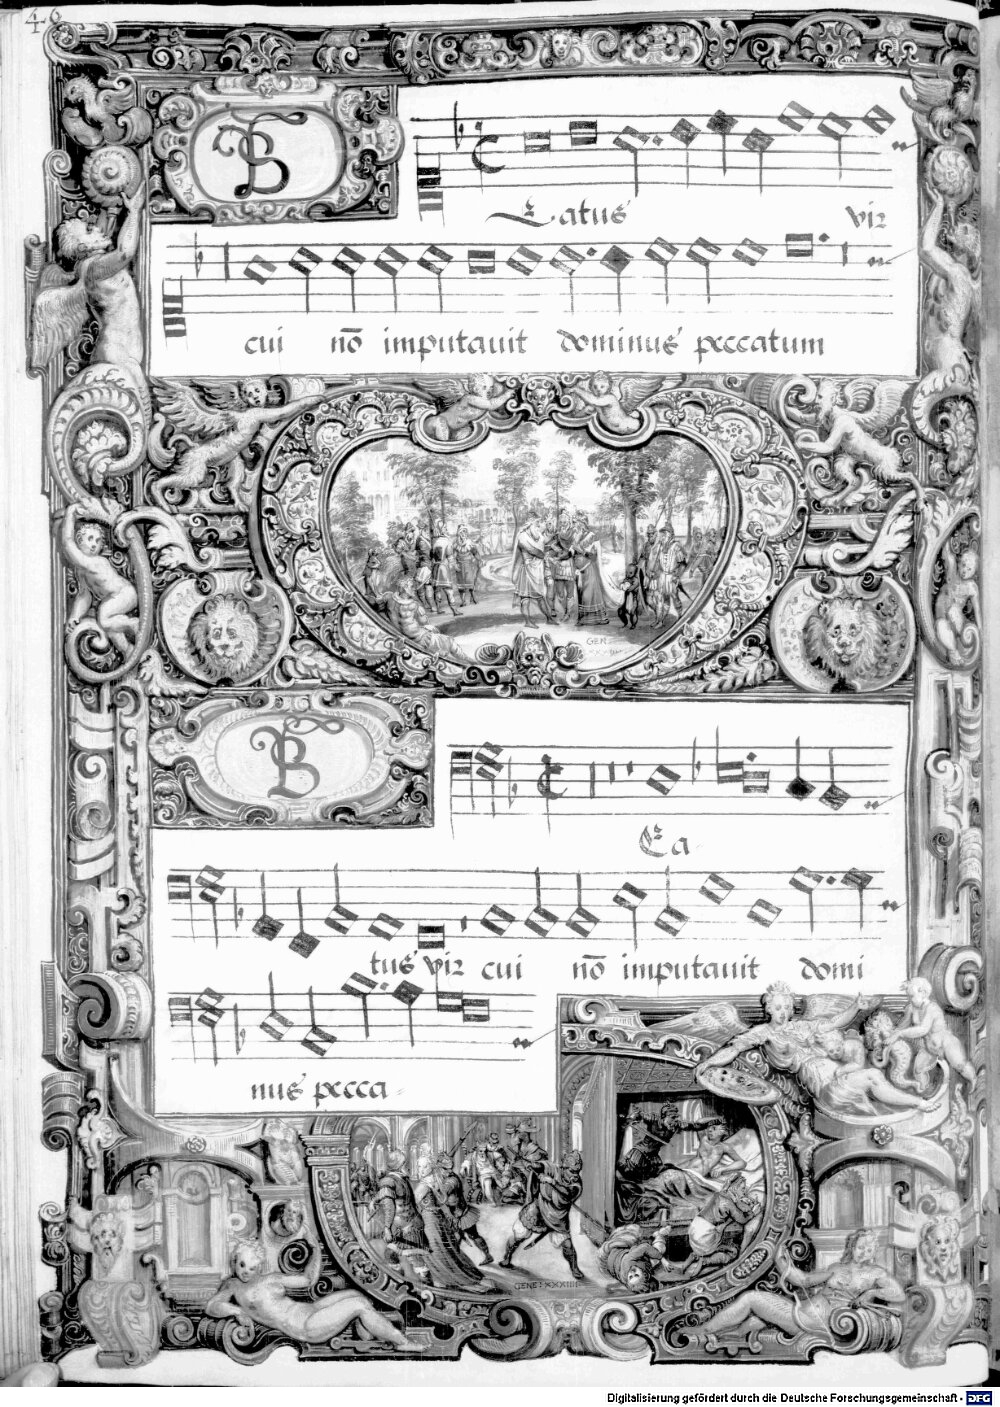 46
B
Eatus vir
cui nō imputauit dominus peccatum
GEN
XXXIIII
B
Ea-
tus vir cui nō imputauit domi
nus pecca-
GENE: XXXIIII
Digitalisierung gefördert durch die Deutsche Forschungsgemeinschaft - DFG